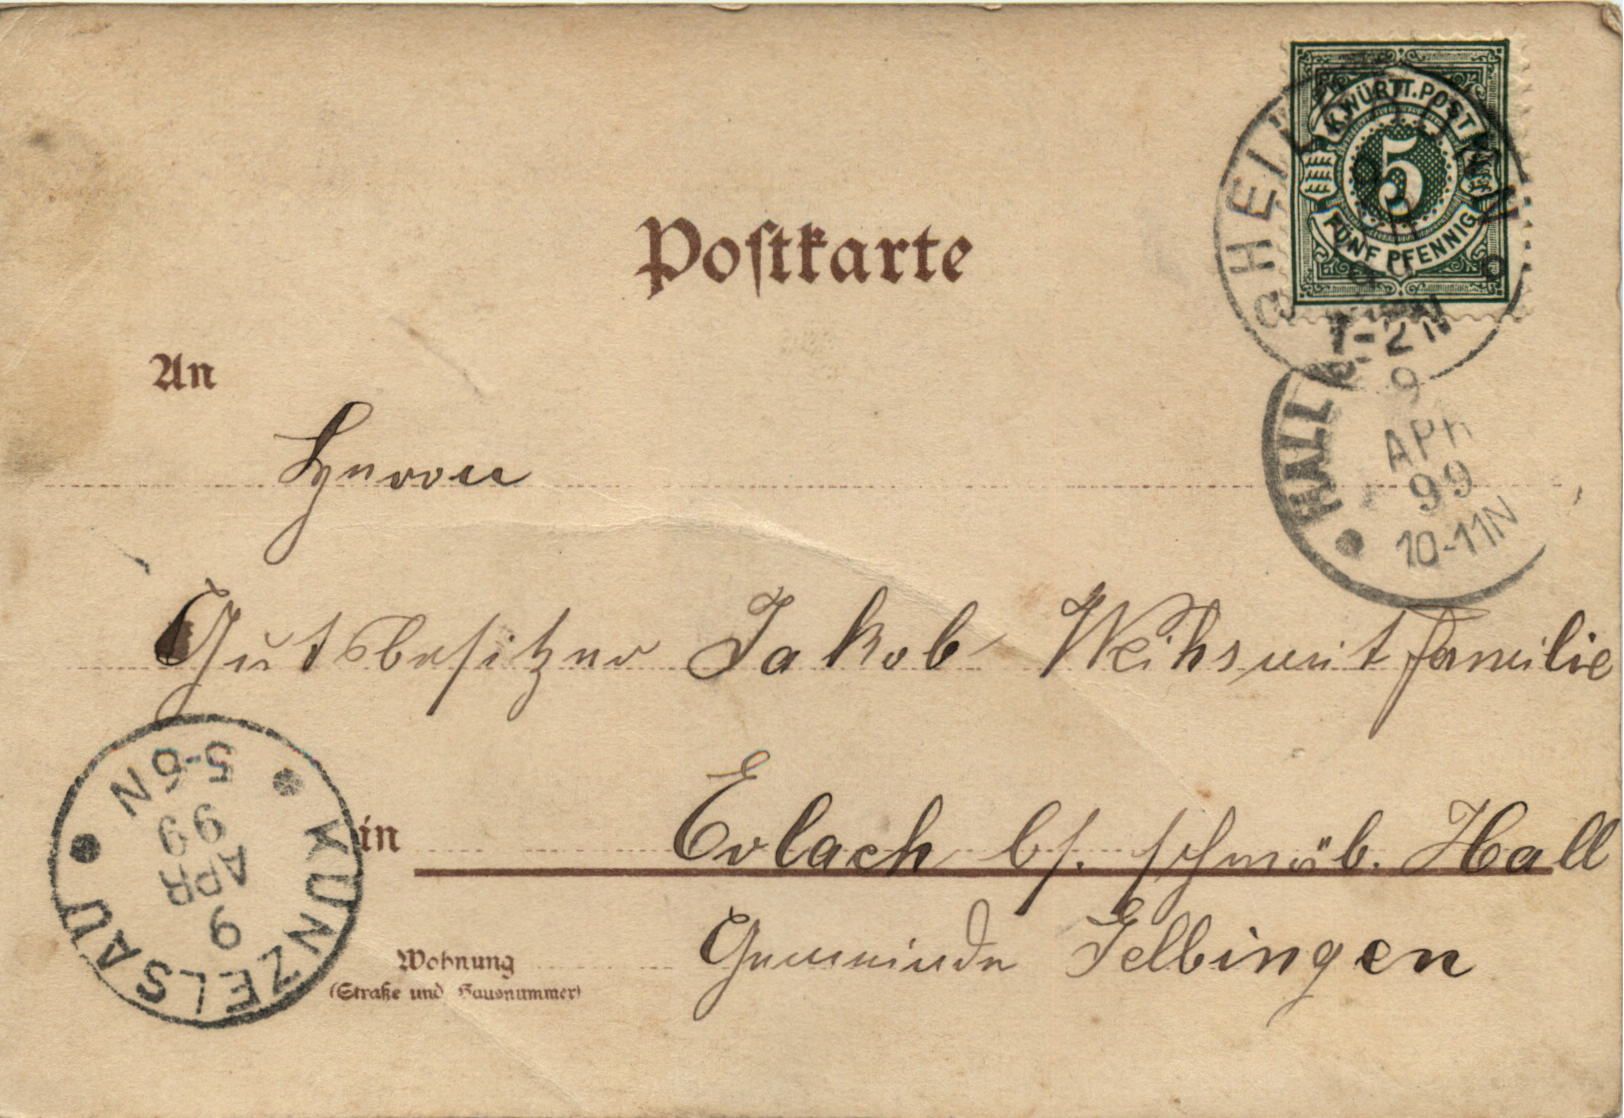 K. WÜRTT. POST
5
FÜNF PFENNIG
HEILBRONN
9
1-2N
Postkarte
HALL
9
APR
99
10-11N
An
Herrn
Gutsbesitzer Jakob Weihs mit Familie
in
Erlach bs. schwäb. Hall
Wohnung
(Straße und Hausnummer)
Gemeinde Gelbingen
KÜNZELSAU
9
APR
99
5-6N